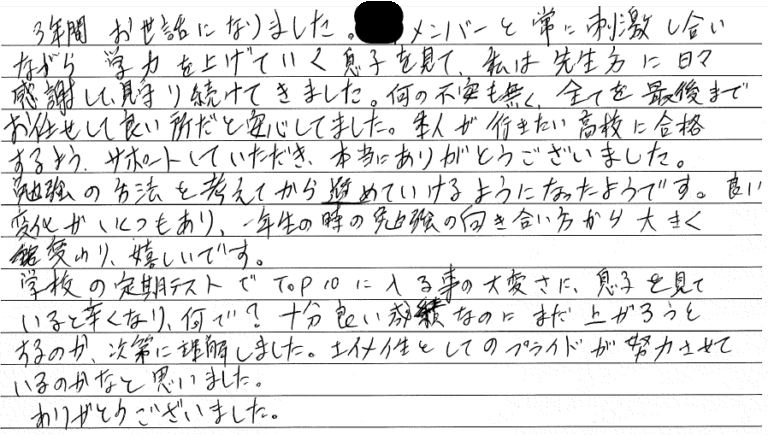 3年間 お世話になりました。 メンバーと常に刺激し合い
ながら 学力を上げていく息子を見て、私は先生方に日々
感謝して、見守り続けてきました。何の不安も無く、全てを最後まで
お任せして良い所だと安心してました。本人が行きたい高校に合格
するよう、サポートしていただき、本当にありがとうございました。
勉強の方法を考えてから進めていけるようになったようです。良い
変化がいくつもあり、一年生の時の勉強の向き合い方から大きく
変わり、嬉しいです。
学校の定期テストでTOP10に入る事の大変さに、息子を見て
いると辛くなり、何で?十分良い成績なのにまだ上がろうと
するのか、次第に理解しました。エイメイ生としてのプライドが努力させて
いるのかなと思いました。
ありがとうございました。